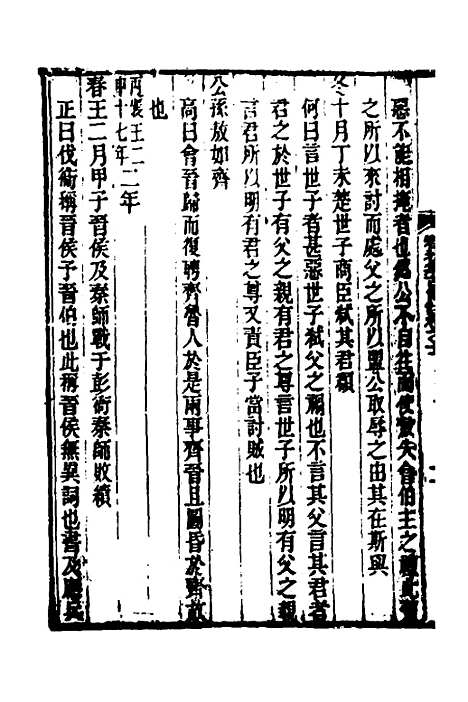 惡不能相掩者也為公不自往而使大夫會伯主之
之所以來討而處父之所以盟公取辱之由其在斯與
冬十月丁未楚世子商臣弒其君頵
何曰言世子者甚惡世子弒父之禍也不言其父言其君者
君之於世子有父之親有君之尊言世子所以明有父之親
言君所以明有君之尊又責臣子當討賊也
公孫敖如齊
高曰會晉歸而復聘齊魯人於是兩事齊晉且圖昏於齊故
也
丙申襄王二十七年二年
春王二月甲子晉侯及秦師戰于彭衙秦師敗績
正曰伐衛稱晉侯予晉伯也此稱晉侯無異詞也書及